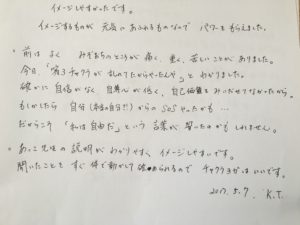 イメージしやすかったです。
イメージするものが 元気にあふれるものなので パワーをもらえました。
。前は よく みぞおちのところが 痛く、重く、苦しいことが ありました。
今日、「第3チャクラが 乱れてたからやったんや」と わかりました。
確かに 自信がなく、自尊心が低く、自己価値を みいだせてなかったから。
もしかしたら 自分(本当の自分!!)からの SOS やったかも…
だからこそ 「私は自由だ」という 言葉が 響いたのかも しれません。
。あっこ先生の 説明が わかりやすく イメージしやすいです。
聞いたことを すぐ 体で動かして 確められるので チャクラヨガは いいです。
2017.5.9 K.T.